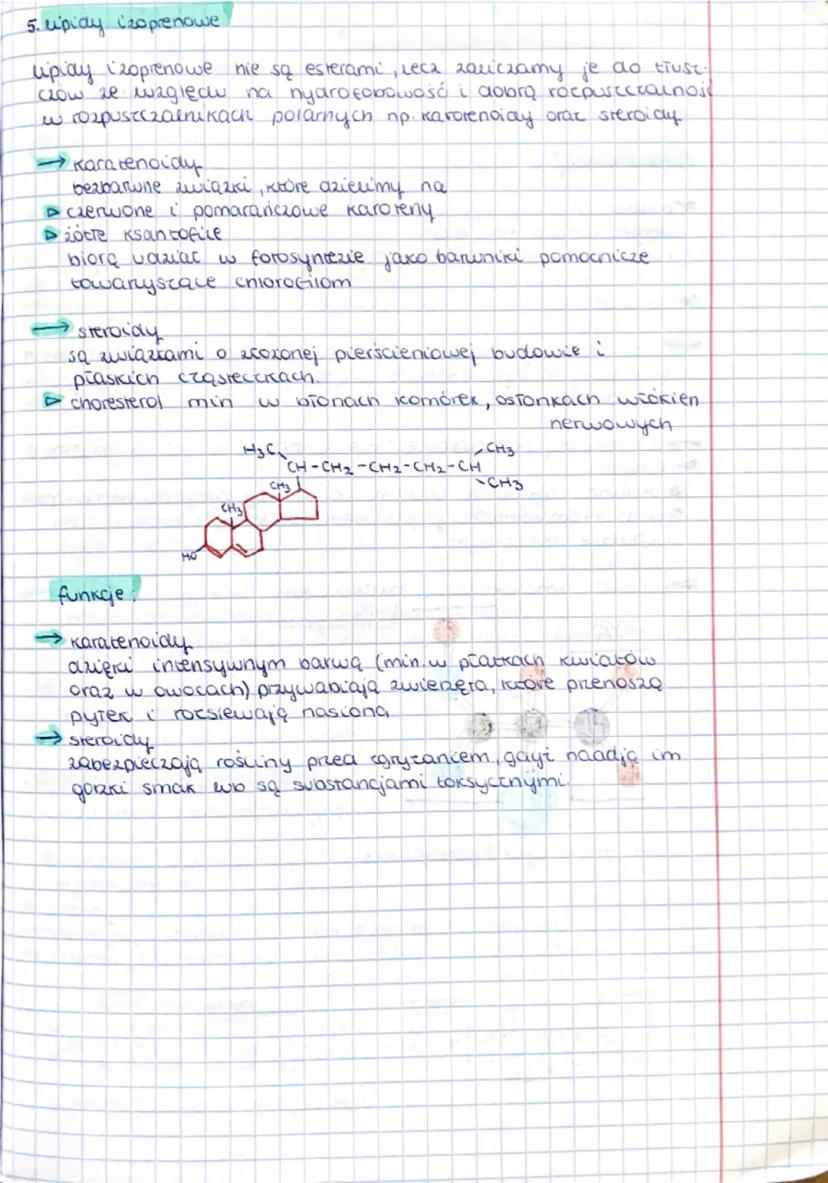 5. lipidy izoprenowe
lipidy izoprenowe nie są esterami, lecz zaliczamy je do tłusz-
czów ze względu na hydrofobowość i dobrą rozpuszczalność
w rozpuszczalnikach polarnych np. karotenoidy oraz steroidy
→ karatenoidy
bezbarwne związki, które dzielimy na
▷ czerwone i pomarańczowe karoteny
▷ żółte ksantofile
biorą udział w fotosyntezie jako barwniki pomocnicze
towarzyszące chlorofilom
→ steroidy
są związkami o złożonej pierścieniowej budowie i
płaskich cząsteczkach.
▷ choresterol min w błonach komórek, osłonkach włókien
nerwowych
H3C CH3
CH-CH2-CH2-CH2-CH
CH3 CH3
CH3
HO
funkcje:
→ karatenoidy
dzięki intensywnym barwą (min. w płatkach kwiatów
oraz w owocach) przywabiają zwierzęta, które przenoszą
pyłek i rozsiewają nasiona
→ steroidy
zabezpieczają rośliny przed zgryzaniem, gdyż naadją im
gorzki smak lub są substancjami toksycznymi.